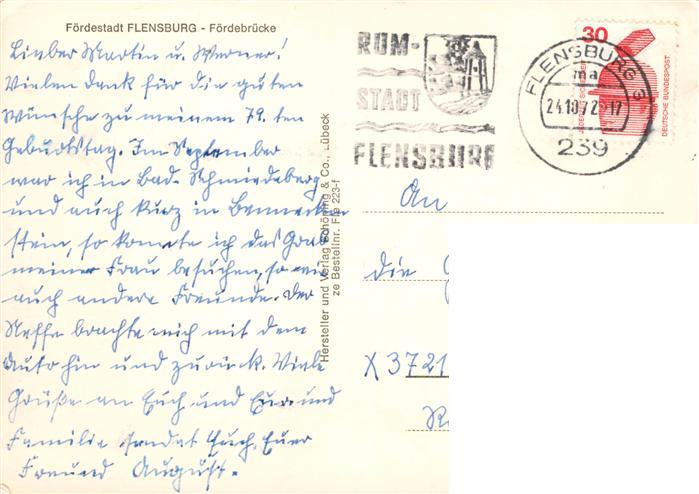 Fördestadt FLENSBURG - Fördebrücke
Lieber Martin u. Werner!
Vielen Dank für die guten
Wünsche zu meinem 79. ten
Geburtstag. Im September
war ich in Bad-Schmiedeberg
und auch kurz in Benneken
stein, so konnte ich das Grab
meiner Frau besuchen, so wie
auch andere Freunde. Der
Neffe brachte mich mit dem
Auto hin und zurück. Viele
Grüße an Euch und Eure und
Familie sendet Euch Euer
Freund August.
Hersteller und Verlag Schöning & Co., Lübeck
ze Bestellnr. Fle 223-f
RUM-
STADT
FLENSBURG
FLENSBURG 3
ma
24.10.72-17
239
30
JEDERZEIT SICHERHEIT
DEUTSCHE BUNDESPOST
An
die
X 3721